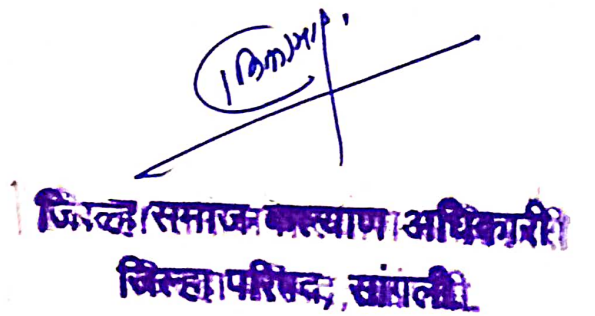 जिल्हा समाज कल्याण अधिकारी
जिल्हा परिषद, सांगली.